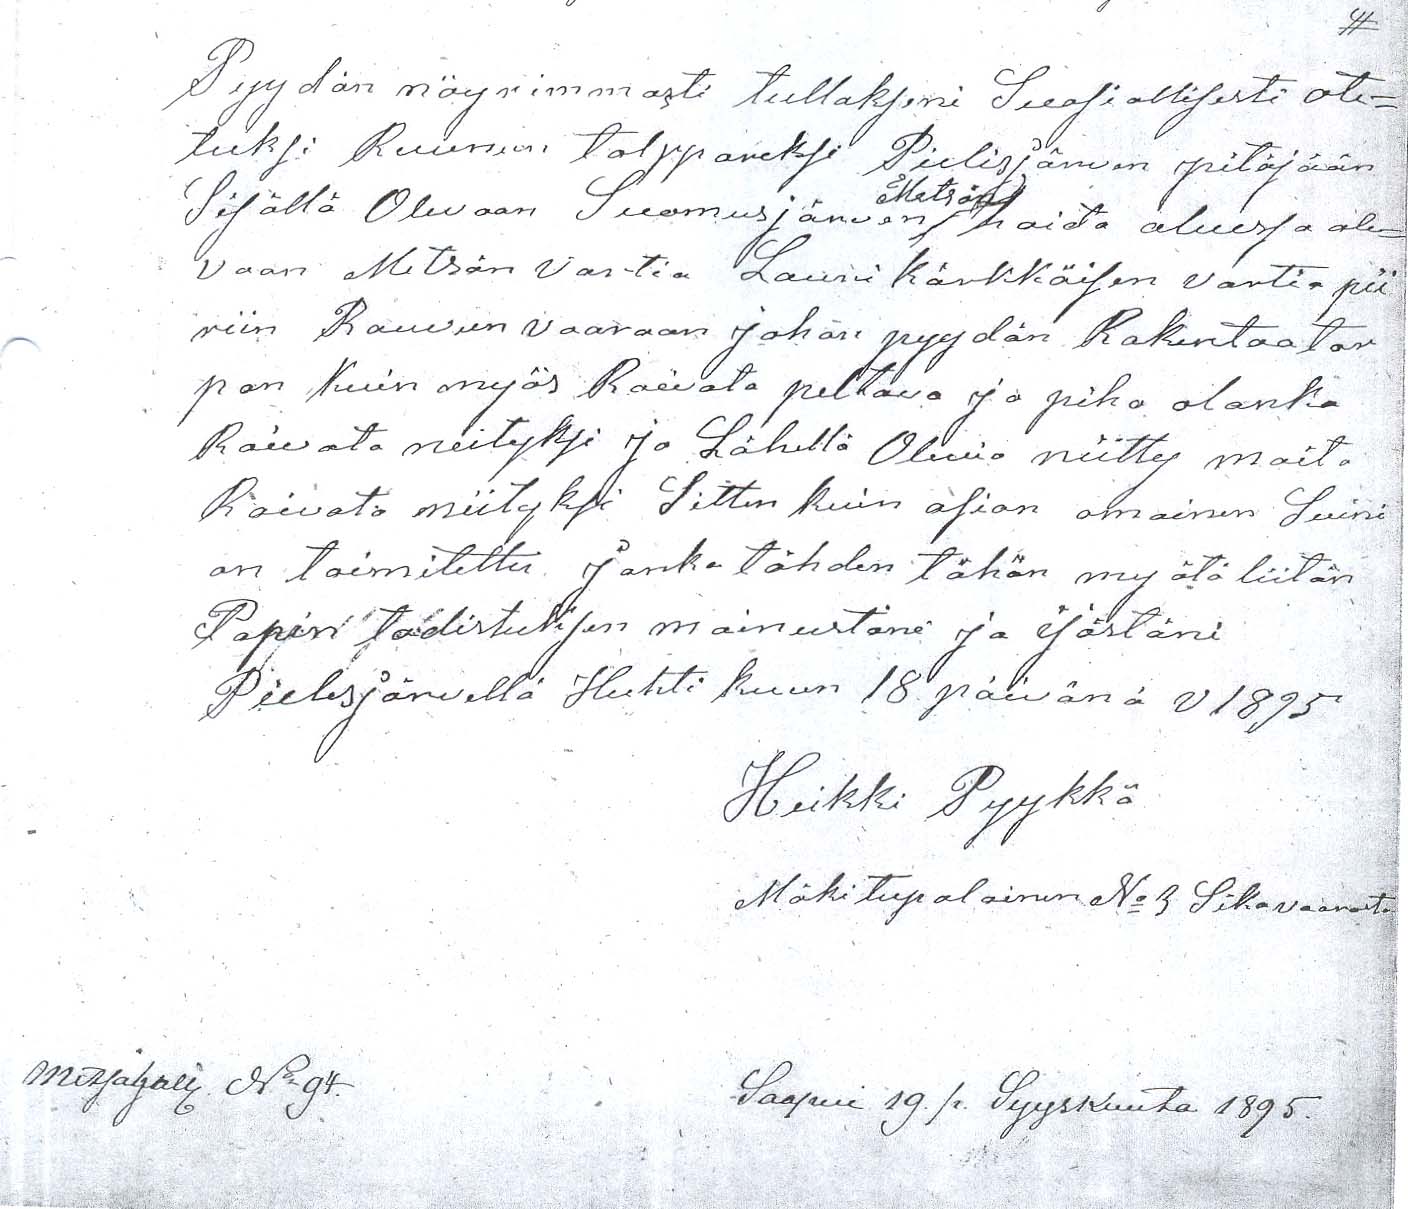 Pyydän nöyrimmasti tullakseni Suosiollisesti ote=
tuksi Ruunun torppareksi Pielisjärven pitäjään
Sisällä Olevaan Suomusjärven Metsän hoito aluessa ole=
vaan Metsän vartia Lauri Kärkkäisen vartia pii
riin Rauvunvaaraan johon pyydän Rakentaa tor
pan kuin myös Raivata peltova ja piha alanka
Raivata neityksi ja Lähellä Olevia niitty maita
Raivata niityksi Sitten kuin asian omainen Suini
on toimitettu jonka tähden tähän myötä liitän
Papin todistuksen maineustani ja ijästäni
Pielisjärvellä Huhti kuun 18 päivänä v 1895
Heikki Pyykkö
Mäkitupalainen No 3 Sikovaarasta
No 94.
Saapui 19 p. Syyskuuta 1895.